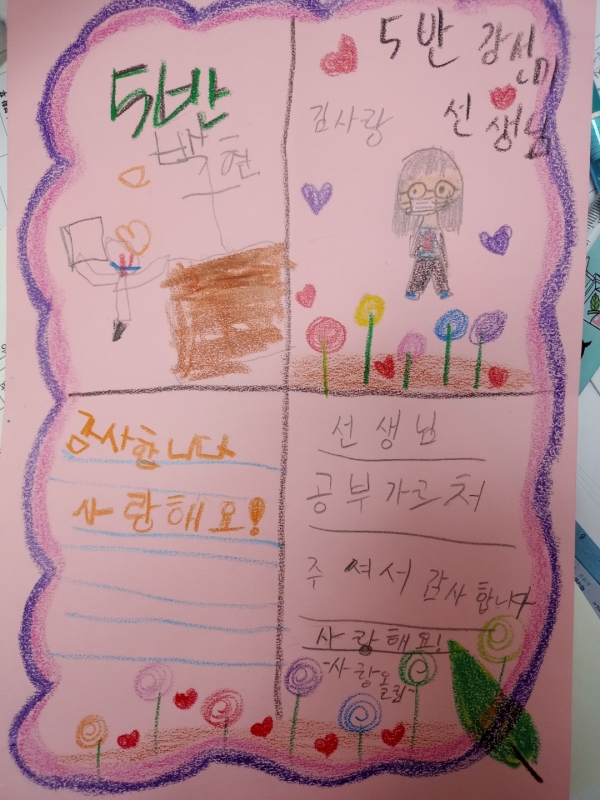 5반
5반 강신미
선생님
김사랑
감사합니다
사랑해요!
선생님
공부가르처
주셔서 감사합니다
사랑해요!
-사랑올림-